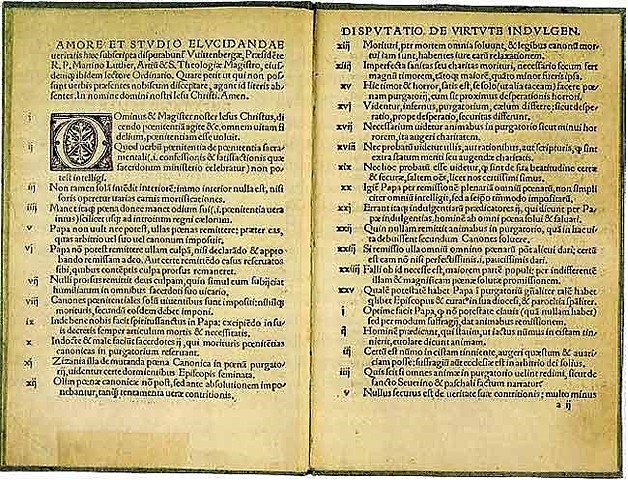 AMORE ET STVDIO ELVCIDANDAE
ueritatis hæc subscripta disputabunť Vuittenbergæ, Præsidēte
R. P. Martino Luther, Artiū & S. Theologiæ Magistro, eius-
demq; ibidem lectore Ordinario. Quare petit ut qui non pos-
sunt uerbis præsentes nobiscum disceptare, agant id literis ab-
sentes. In nomine domini nostri Iesu Christi. Amen.
i DOminus & Magister noster Iesus Christus, di-
cendo pœnitentiā agite &c. omnem uitam fi
delium, pœnitentiam esse uoluit.
ij Quod uerbū pœnitentia de pœnitentia sacra-
mentali (.i. confessionis & satisfactionis quæ
sacerdotum ministerio celebratur) non po-
test intelligi.
iij Non tamen solā intēdit interiorē: immo interior nulla est, nisi
foris operetur uarias carnis mortificationes.
iiij Manet itaq; pœna donec manet odium sui (.i. pœnitentia uera
intus) scilicet usq; ad introitum regni cælorum.
v Papa non uult nec potest, ullas pœnas remittere: præter eas,
quas arbitrio uel suo uel canonum imposuit.
vj Papa nō potest remittere ullam culpā, nisi declarādo & appro
bando remissam a deo. Aut certe remittēdo casus reseruatos
sibi, quibus contēptis culpa prorsus remaneret.
vij Nulli prorsus remittit deus culpam, quin simul eum subijciat
humiliatum in omnibus sacerdoti suo uicario.
viij Canones pœnitentiales solū uiuentibus sunt impositi: nihilq;
morituris, secundū eosdem debet imponi.
ix Inde bene nobis facit spiritussanctus in Papa: excipiēdo in su-
is decretis semper articulum mortis & necessitatis.
x Indocte & male faciūt sacerdotes ij, qui morituris pœnitētias
canonicas in purgatorium reseruant.
xj Zizania illa de mutanda pœna Canonica in pœnā purgato-
rij, uidentur certe dormientibus Episcopis seminata.
xij Olim pœnæ canonicæ nō post, sed ante absolutionem impo-
nebantur, tanq̄ tentamenta ueræ contritionis.
DISPVTATIO DE VIRTVTE INDVLGEN.
xiij Morituri, per mortem omnia soluunt, & legibus canonū mor-
tui iam sunt, habentes iure earū relaxationem.
xiiij Imperfecta sanitas seu charitas morituri, necessario secum fert
magnū timorem, tātoq; maiorē, quāto minor fuerit ipsa.
xv Hic timor & horror, satis est, se solo (ut alia taceam) facere pœ-
nam purgatorij, cum sit proximus desperationis horrori.
xvj Videntur, infernus, purgatorium, cælum differre: sicut despe-
ratio, prope desperatio, securitas differunt.
xvij Necessarium uidetur animabus in purgatorio sicut minui hor-
rorem, ita augeri charitatem.
xviij Nec probatū uidetur ullis, aut rationibus, aut scripturis, q̄ sint
extra statum meriti seu augendæ charitatis.
xix Nec hoc probatū esse uidetur, q̄ sint de sua beatitudine certæ
& securæ, saltem oēs, licet nos certissimi simus.
xx Igiť Papa per remissionē plenariā omniū pœnarū, non simpli
citer omniū intelligit, sed a seipso tm̄modo impositarū.
xxj Errant itaq; indulgentiarū prædicatores ij, qui dicunt per Pa-
pæ indulgentias, hominē ab omni pœna solui & saluari.
xxij Quin nullam remittit animabus in purgatorio, quā in hac ui-
ta debuissent secundum Canones soluere.
xxiij Si remissio ulla omniū omnino pœnarū pōt alicui dari; certū
est eam nō nisi perfectissimis .i. paucissimis dari.
xxiiij Falli ob id necesse est, maiorem partē populi: per indifferentē
illam & magnificam pœnæ solutæ promissionem.
xxv Qualē potestatē habet Papa ī purgatoriū gn̄aliter talē habet
qlibet Episcopus & curatꝰ in sua diocesi, & parochia spāliter.
i Optime facit Papa, q̄ nō potestate clauis (quā nullam habet)
sed per modum suffragij, dat animabus remissionem.
ij Hominē prædicant, qui statim, ut iactus nūmus in cistam tin-
nierit, euolare dicunt animam.
iij Certū est nūmo in cistam tinniente, augeri quæstum & auari-
ciam posse: suffragiū aūt ecclesiæ est in arbitrio dei solius.
iiij Quis scit si omnes animæ in purgatorio uelint redimi, sicut de
sancto Seuerino & paschali factum narratur.
v Nullus securus est de ueritate suæ contritionis; multo minus
a ij